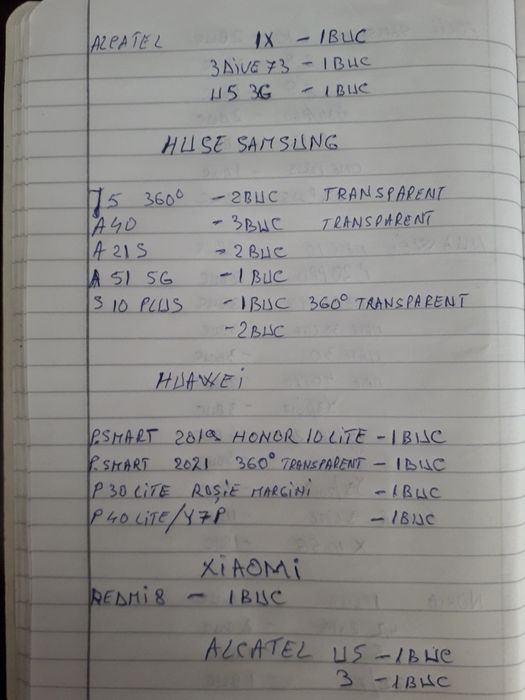 ALCATEL 1X - 1BUC
U5 3G - 1BUC
HUSE SAMSUNG
J5 360° - 2BUC TRANSPARENT
A40 - 3BUC TRANSPARENT
A21S - 2BUC
A51 5G - 1BUC
S10 PLUS - 1BUC 360° TRANSPARENT
- 2BUC
HUAWEI
P.SMART 2019 HONOR 10 LITE - 1BUC
P.SMART 2021 360° TRANSPARENT - 1BUC
P30 LITE ROȘIE MARGINI - 1BUC
P40 LITE/Y7P - 1BUC
XIAOMI
REDMI 8 - 1BUC
ALCATEL U5 - 1BUC
3 - 1BUC